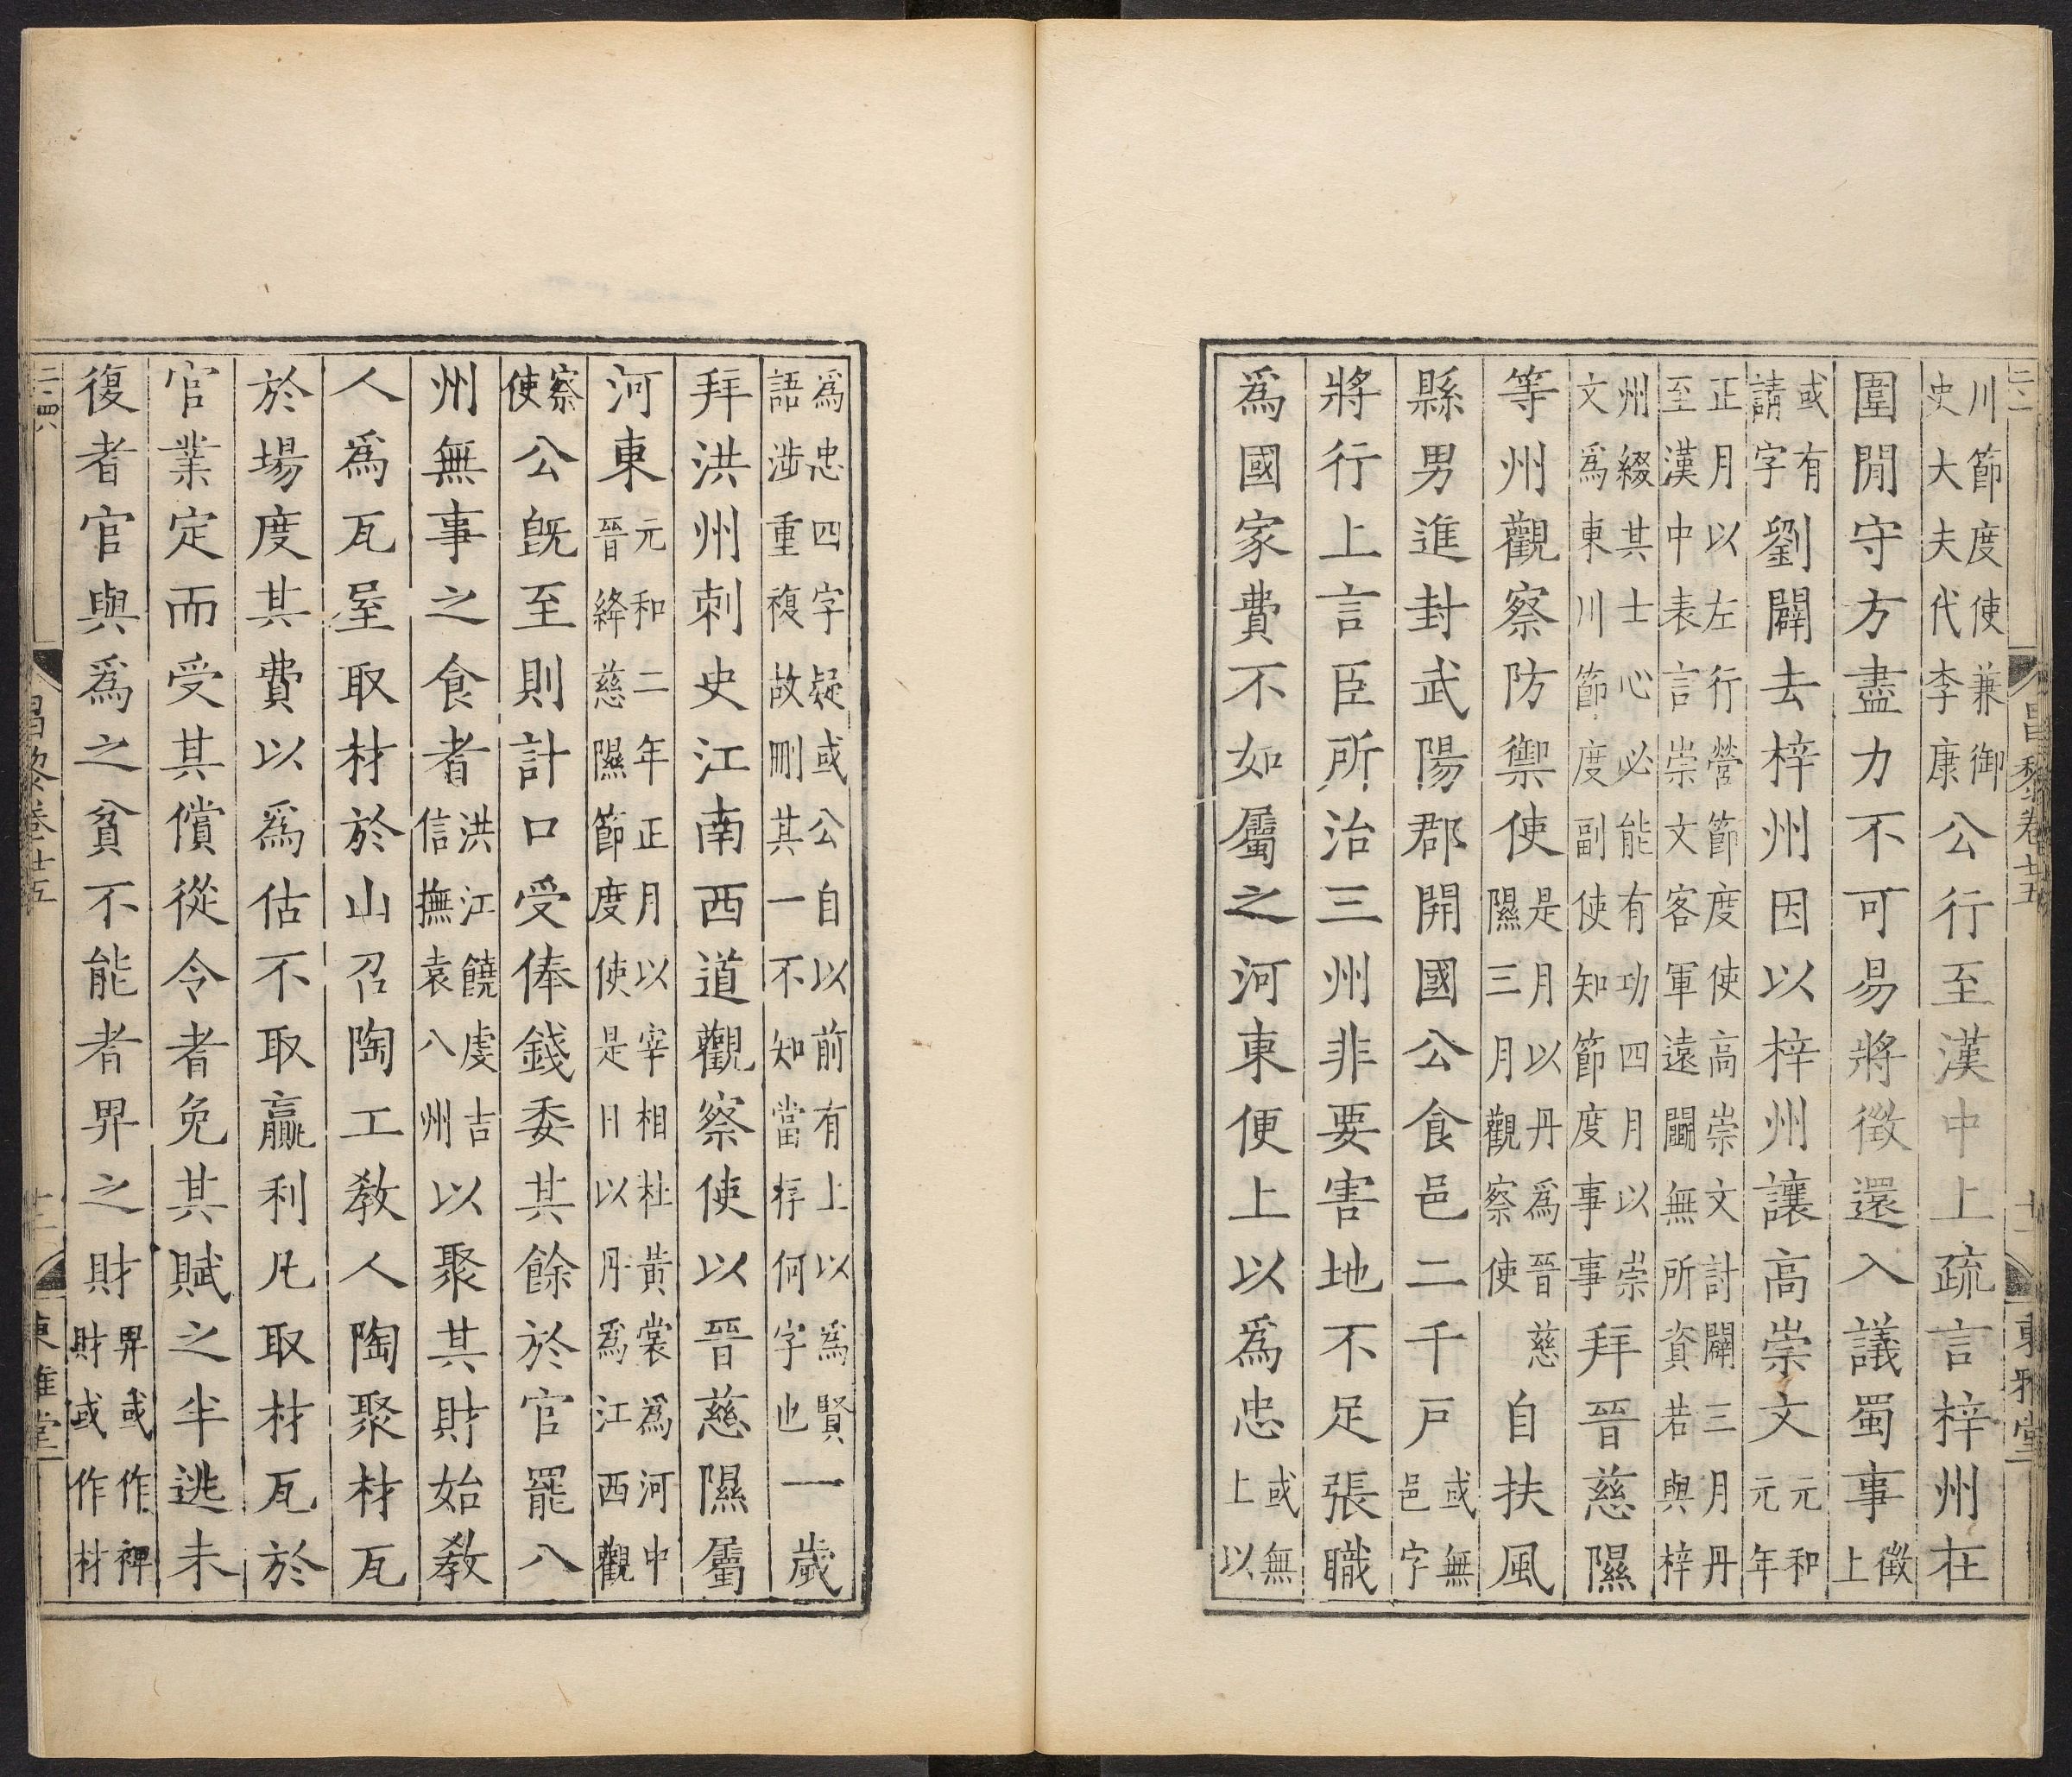 昌黎卷廿五 十一 東雅堂
川節度使兼御史大夫代李康公行至漢中上疏言梓州在
圍閒守方盡力不可易將徵還入議蜀事徵上
或有請字劉闢去梓州因以梓州讓高崇文元和元年
正月以左行營節度使高崇文計闢三月丹至漢中表言崇文客軍遠鬬無所資若與梓
州綴其士心必能有功四月以崇文爲東川節度副使知節度事事拜晉慈隰
等州觀察防禦使是月以丹爲晉慈隰三月觀察使自扶風
縣男進封武陽郡開國公食邑二千戸或無邑字
將行上言臣所治三州非要害地不足張職
爲國家費不如屬之河東便上以爲忠或無上以
爲忠四字疑或公自以前有上以爲賢語涉重複故刪其一不知當存何字也一歲
拜洪州刺史江南西道觀察使以晉慈隰屬
河東元和二年正月以宰相杜黃裳爲河中晉絳慈隰節度使是日以丹爲江西觀
察使公旣至則計口受俸錢委其餘於官罷八
州無事之食者洪江饒虔吉信撫袁八州以聚其財始敎
人爲瓦屋取材於山召陶工敎人陶聚材瓦
於場度其費以爲估不取贏利凡取材瓦於
官業定而受其償從令者免其賦之半逃未
復者官與爲之貧不能者畀之財畀或作裨財或作材
昌黎卷廿五 十一 東雅堂